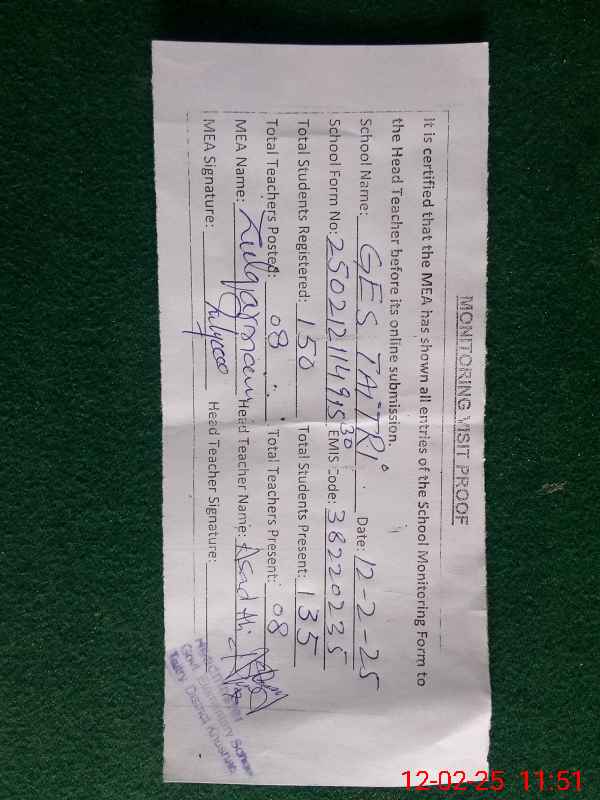 MONITORING VISIT PROOF
It is certified that the MEA has shown all entries of the School Monitoring Form to
the Head Teacher before its online submission.
School Name: GES TAITRI Date: 12-2-25
School Form No: EMIS Code: 38220235
Total Students Registered: 150 Total Students Present: 135
Total Teachers Posted: 08 Total Teachers Present: 08
MEA Name: Head Teacher Name: Asad
MEA Signature: Head Teacher Signature:
Govt. Elementary School
District Khushab
12-02-25 11:51